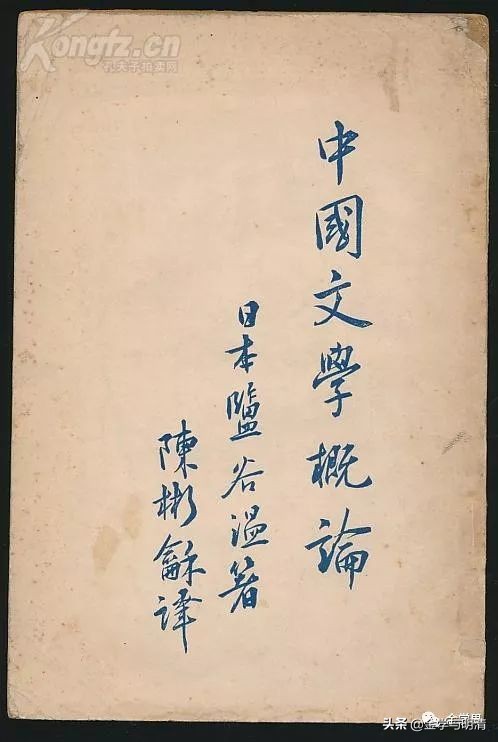 Kongfz.cn
孔夫子拍卖网
中國文學概論
日本鹽谷温著
陳彬龢译
头条 @金学与明清